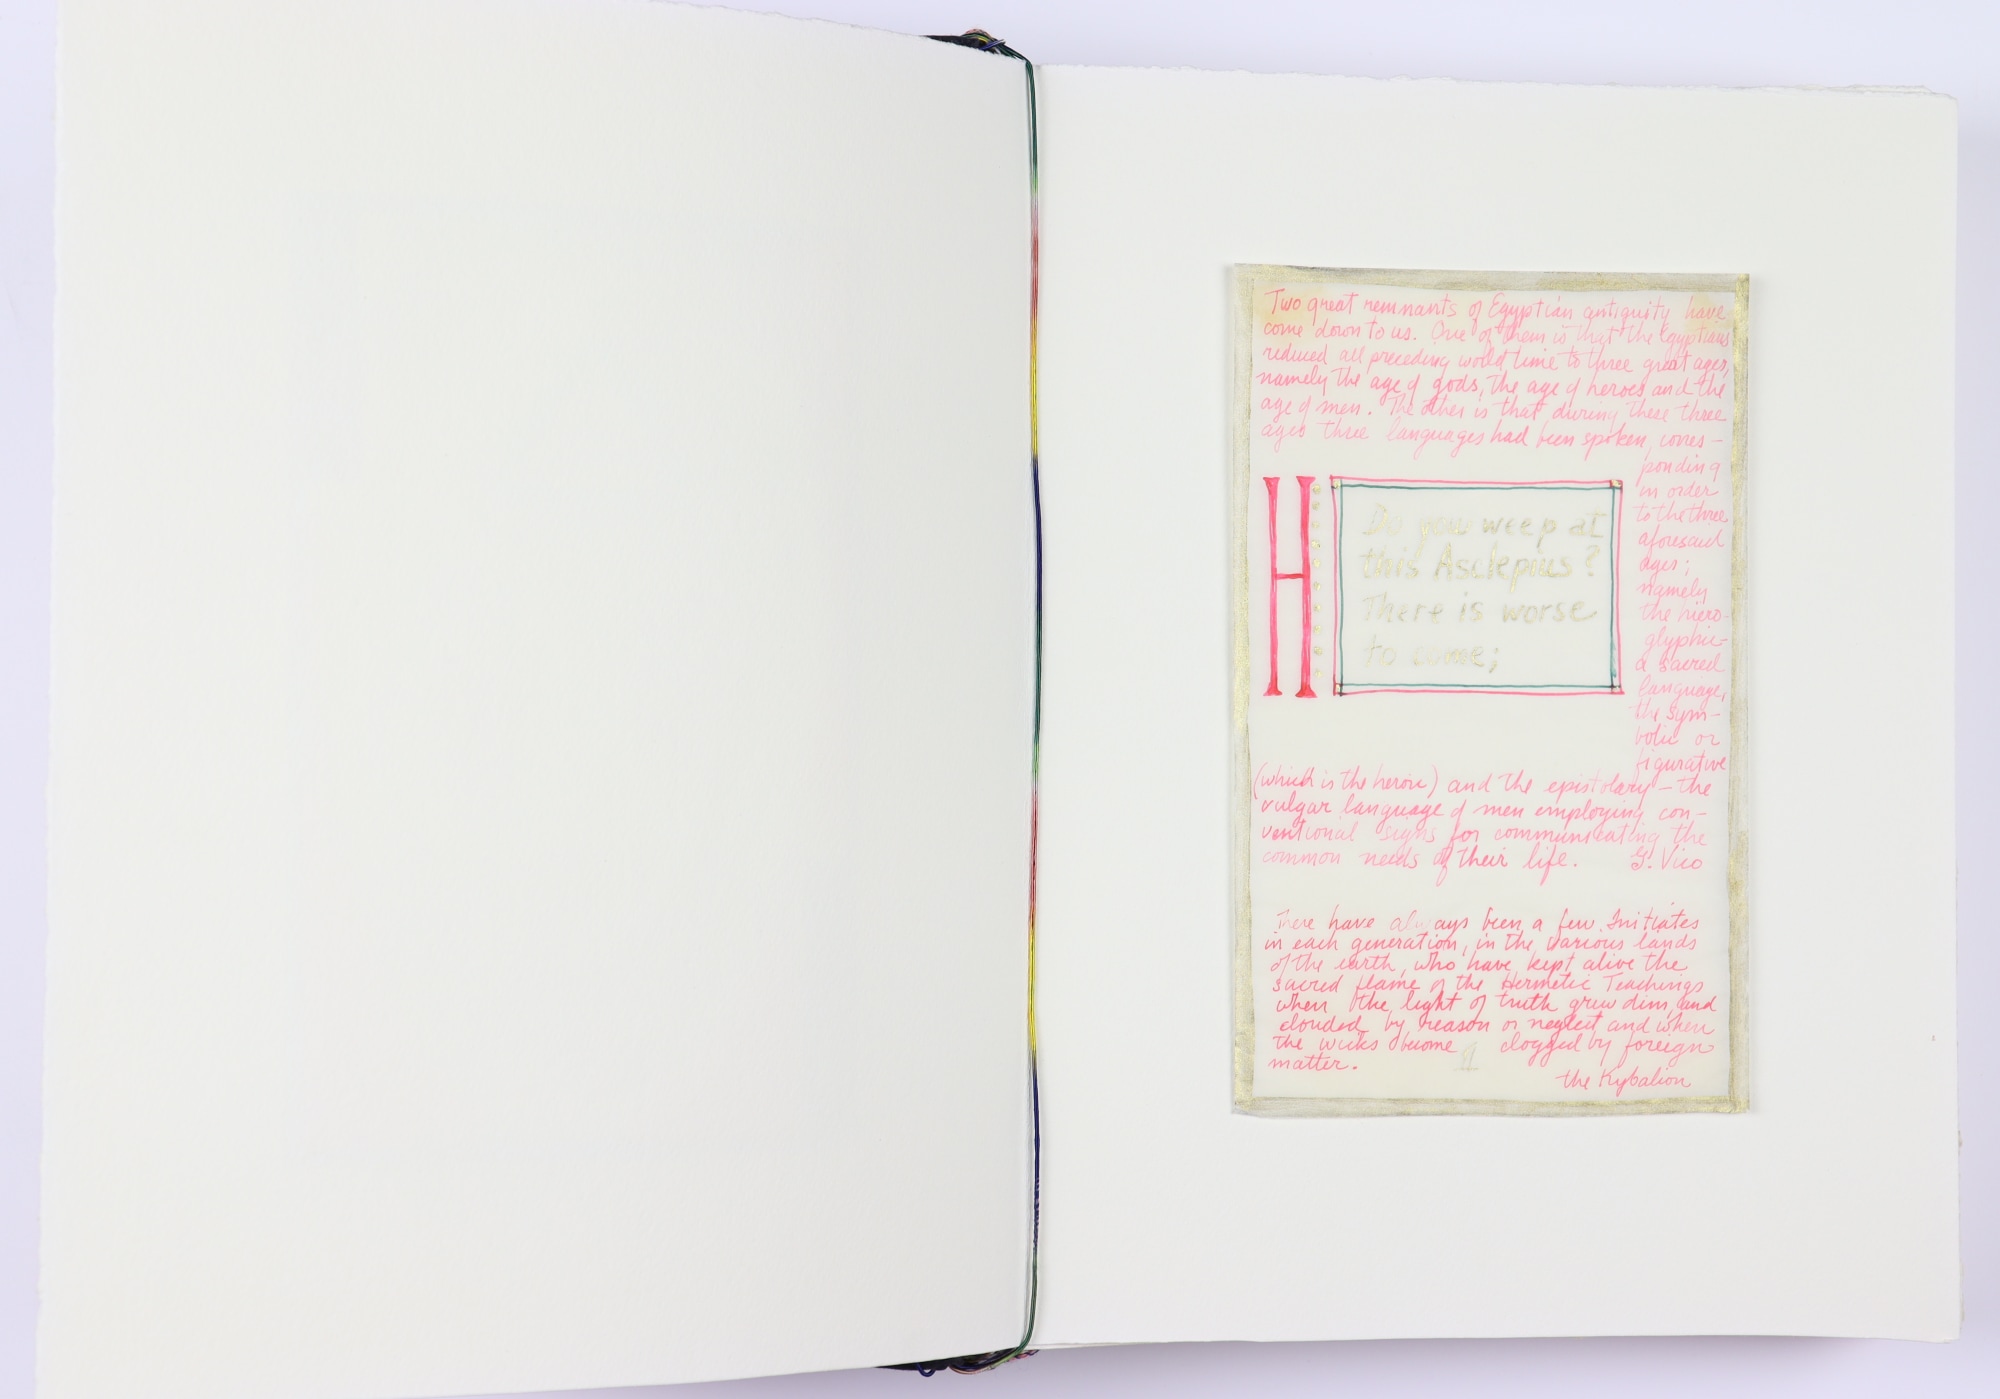 Two great remnants of Egyptian antiquity have
come down to us. One of them is that the Egyptians
reduced all preceding world time to three great ages,
namely the age of gods, the age of heroes and the
age of men. The other is that during these three
ages three languages had been spoken, corres-
ponding
in order
to the three
aforesaid
ages;
namely
the hiero-
glyphic-
a sacred
language,
the sym-
bolic or
figurative
H
Do you weep at
this Asclepius?
There is worse
to come;
(which is the heroic) and the epistolary - the
vulgar language of men employing con-
ventional signs for communicating the
common needs of their life. G. Vico
There have always been a few Initiates
in each generation, in the various lands
of the earth, who have kept alive the
sacred flame of the Hermetic Teachings
when the light of truth grew dim, and
clouded by reason or neglect and when
the wicks become clogged by foreign
matter.
the Kybalion